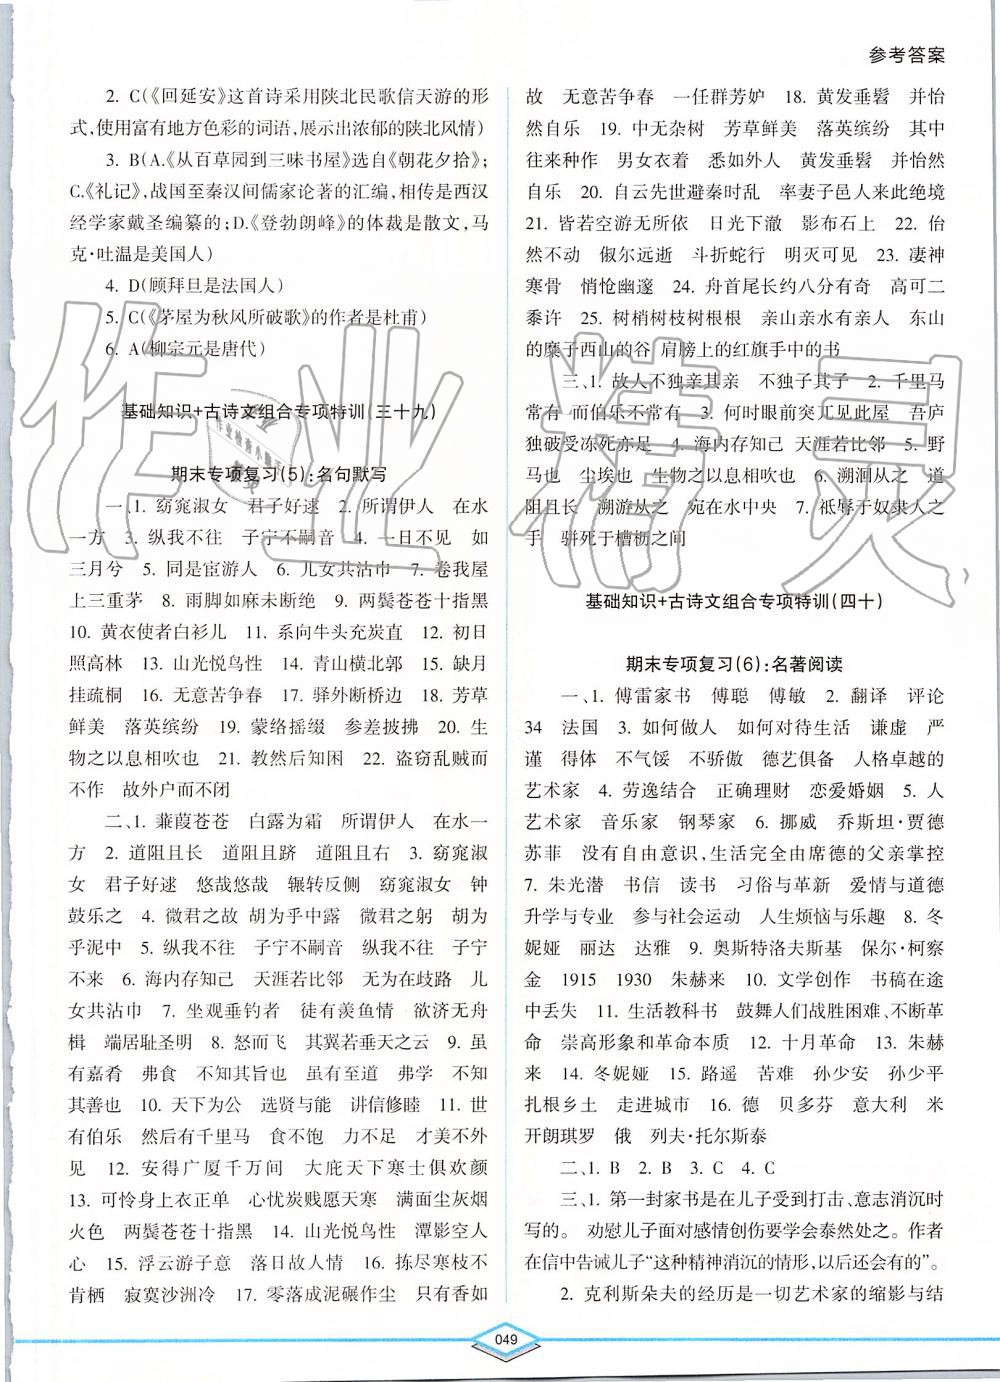 参考答案
2. C(《回延安》这首诗采用陕北民歌信天游的形
式,使用富有地方色彩的词语,展示出浓郁的陕北风情)
3. B(A.《从百草园到三味书屋》选自《朝花夕拾》;
C.《礼记》,战国至秦汉间儒家论著的汇编,相传是西汉
经学家戴圣编纂的;D.《登勃朗峰》的体裁是散文,马
克·吐温是美国人)
4. D(顾拜旦是法国人)
5. C(《茅屋为秋风所破歌》的作者是杜甫)
6. A(柳宗元是唐代)
基础知识+古诗文组合专项特训(三十九)
期末专项复习(5):名句默写
一、1. 窈窕淑女 君子好逑 2. 所谓伊人 在水
一方 3. 纵我不往 子宁不嗣音 4. 一日不见 如
三月兮 5. 同是宦游人 6. 儿女共沾巾 7. 卷我屋
上三重茅 8. 雨脚如麻未断绝 9. 两鬓苍苍十指黑
10. 黄衣使者白衫儿 11. 系向牛头充炭直 12. 初日
照高林 13. 山光悦鸟性 14. 青山横北郭 15. 缺月
挂疏桐 16. 无意苦争春 17. 驿外断桥边 18. 芳草
鲜美 落英缤纷 19. 蒙络摇缀 参差披拂 20. 生
物之以息相吹也 21. 教然后知困 22. 盗窃乱贼而
不作 故外户而不闭
二、1. 蒹葭苍苍 白露为霜 所谓伊人 在水一
方 2. 道阻且长 道阻且跻 道阻且右 3. 窈窕淑
女 君子好逑 悠哉悠哉 辗转反侧 窈窕淑女 钟
鼓乐之 4. 微君之故 胡为乎中露 微君之躬 胡为
乎泥中 5. 纵我不往 子宁不嗣音 纵我不往 子宁
不来 6. 海内存知己 天涯若比邻 无为在歧路 儿
女共沾巾 7. 坐观垂钓者 徒有羡鱼情 欲济无舟
楫 端居耻圣明 8. 怒而飞 其翼若垂天之云 9. 虽
有嘉肴 弗食 不知其旨也 虽有至道 弗学 不知
其善也 10. 天下为公 选贤与能 讲信修睦 11. 世
有伯乐 然后有千里马 食不饱 力不足 才美不外
见 12. 安得广厦千万间 大庇天下寒士俱欢颜
13. 可怜身上衣正单 心忧炭贱愿天寒 满面尘灰烟
火色 两鬓苍苍十指黑 14. 山光悦鸟性 潭影空人
心 15. 浮云游子意 落日故人情 16. 拣尽寒枝不
肯栖 寂寞沙洲冷 17. 零落成泥碾作尘 只有香如
故 无意苦争春 一任群芳妒 18. 黄发垂髫 并怡
然自乐 19. 中无杂树 芳草鲜美 落英缤纷 其中
往来种作 男女衣着 悉如外人 黄发垂髫 并怡然
自乐 20. 自云先世避秦时乱 率妻子邑人来此绝境
21. 皆若空游无所依 日光下澈 影布石上 22. 佁
然不动 俶尔远逝 斗折蛇行 明灭可见 23. 凄神
寒骨 悄怆幽邃 24. 舟首尾长约八分有奇 高可二
黍许 25. 树梢树枝树根根 亲山亲水有亲人 东山
的糜子西山的谷 肩膀上的红旗手中的书
三、1. 故人不独亲其亲 不独子其子 2. 千里马
常有 而伯乐不常有 3. 何时眼前突兀见此屋 吾庐
独破受冻死亦足 4. 海内存知己 天涯若比邻 5. 野
马也 尘埃也 生物之以息相吹也 6. 溯洄从之 道
阻且长 溯游从之 宛在水中央 7. 祗辱于奴隶人之
手 骈死于槽枥之间
基础知识+古诗文组合专项特训(四十)
期末专项复习(6):名著阅读
一、1. 傅雷家书 傅聪 傅敏 2. 翻译 评论
34 法国 3. 如何做人 如何对待生活 谦虚 严
谨 得体 不气馁 不骄傲 德艺俱备 人格卓越的
艺术家 4. 劳逸结合 正确理财 恋爱婚姻 5. 人
艺术家 音乐家 钢琴家 6. 挪威 乔斯坦·贾德
苏菲 没有自由意识,生活完全由席德的父亲掌控
7. 朱光潜 书信 读书 习俗与革新 爱情与道德
升学与专业 参与社会运动 人生烦恼与乐趣 8. 冬
妮娅 丽达 达雅 9. 奥斯特洛夫斯基 保尔·柯察
金 1915 1930 朱赫来 10. 文学创作 书稿在途
中丢失 11. 生活教科书 鼓舞人们战胜困难、不断革
命 崇高形象和革命本质 12. 十月革命 13. 朱赫
来 14. 冬妮娅 15. 路遥 苦难 孙少安 孙少平
扎根乡土 走进城市 16. 德 贝多芬 意大利 米
开朗琪罗 俄 列夫·托尔斯泰
二、1. B 2. B 3. C 4. C
三、1. 第一封家书是在儿子受到打击、意志消沉时
写的。 劝慰儿子面对感情创伤要学会泰然处之。作者
在信中告诫儿子“这种精神消沉的情形,以后还会有的”。
2. 克利斯朵夫的经历是一切艺术家的缩影与结
049
作业精灵